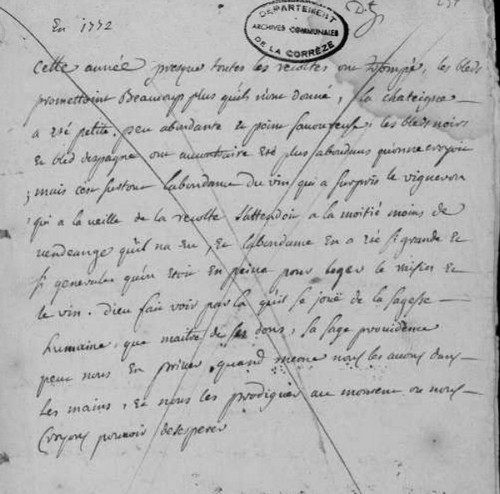 En 1772
DEPARTEMENT
ARCHIVES COMMUNALES
DE LA CORRÈZE
Cette année presque toutes les recoltes ont trompé, les bleds
promettoint Beaucoup plus quils n'ont donné, la chateigne
a eté petite, peu abondante et point savoureuse, les bleds noirs
et bled despagne ont aucontraire eté plus abondans quonne croyoit
mais cest surtout labondance du vin, qui a surpris le vigneron
qui a la veille de la recolte s'attendoit a la moitié moins de
vendange quil na eu, et labondance en a eté si grande et
si generale quon etoit en peine pour loger le raisin et
le vin. Dieu fait voir par la quil se joüe de la sagesse
humaine, que maitre de ses dons, sa sage providence
peut nous en priver quand meme nous les avons dans
les mains, et nous les prodiguer au moment ou nous
croyons pouvoir desesperer